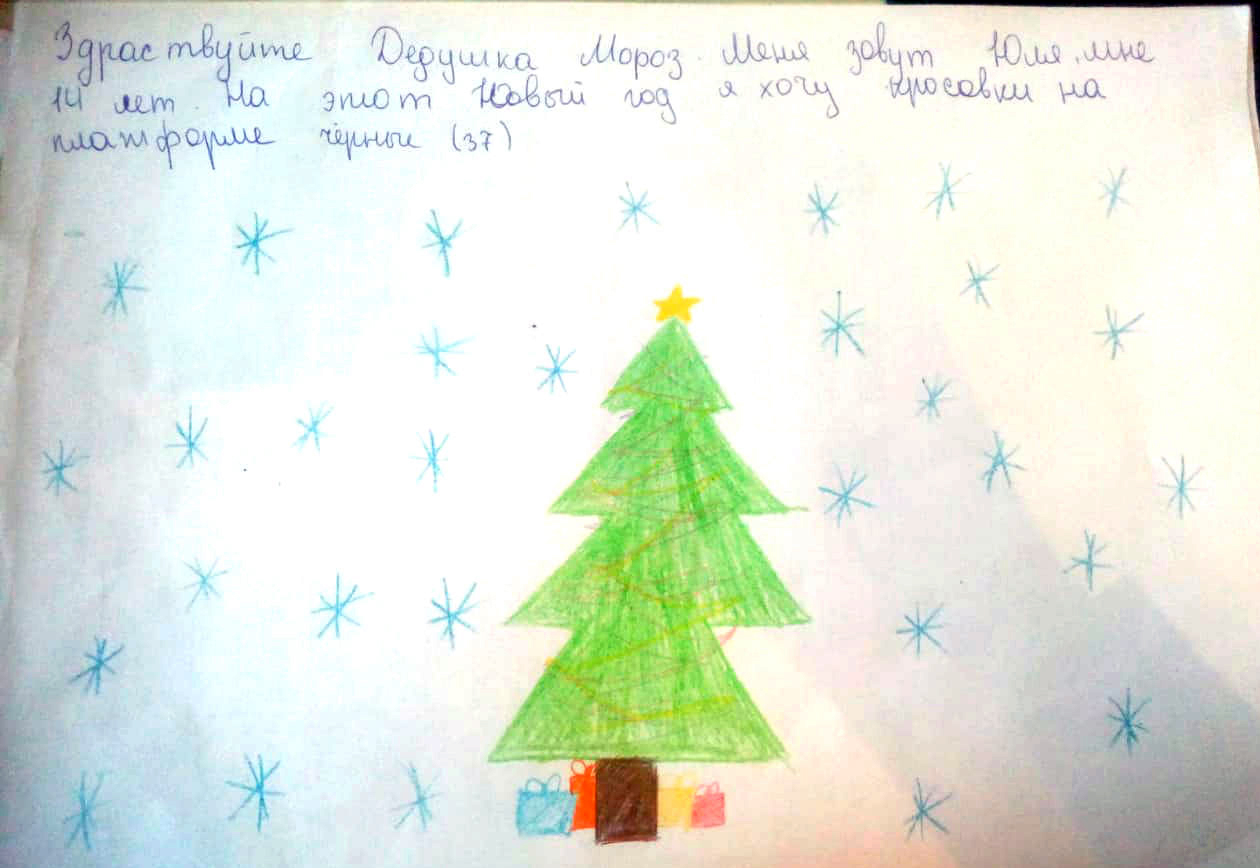 Здраствуйте Дедушка Мороз. Меня зовут Юля, мне
14 лет. На этот Новый год я хочу кросовки на
платформе чёрные (37)